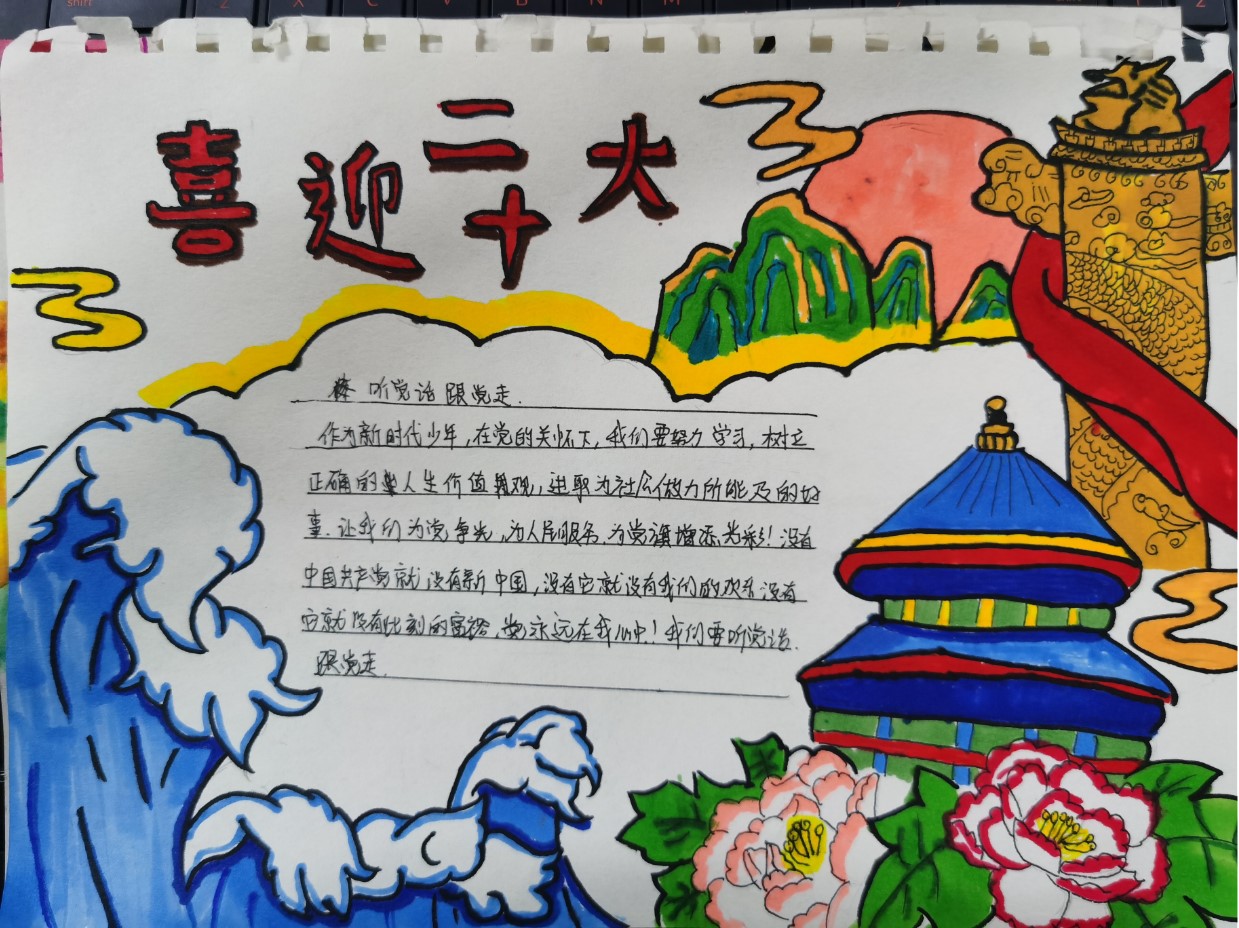 喜迎二十大
听党话 跟党走.
作为新时代少年,在党的关怀下,我们要努力学习,树立
正确的人生价值观,进取为社会做力所能及的好
事.让我们为党争光,为人民服务.为党旗增添光彩!没有
中国共产党就没有新中国,没有它就没有我们的欢乐没有
它就没有此刻的富裕,党永远在我心中!我们要听党话.
跟党走.